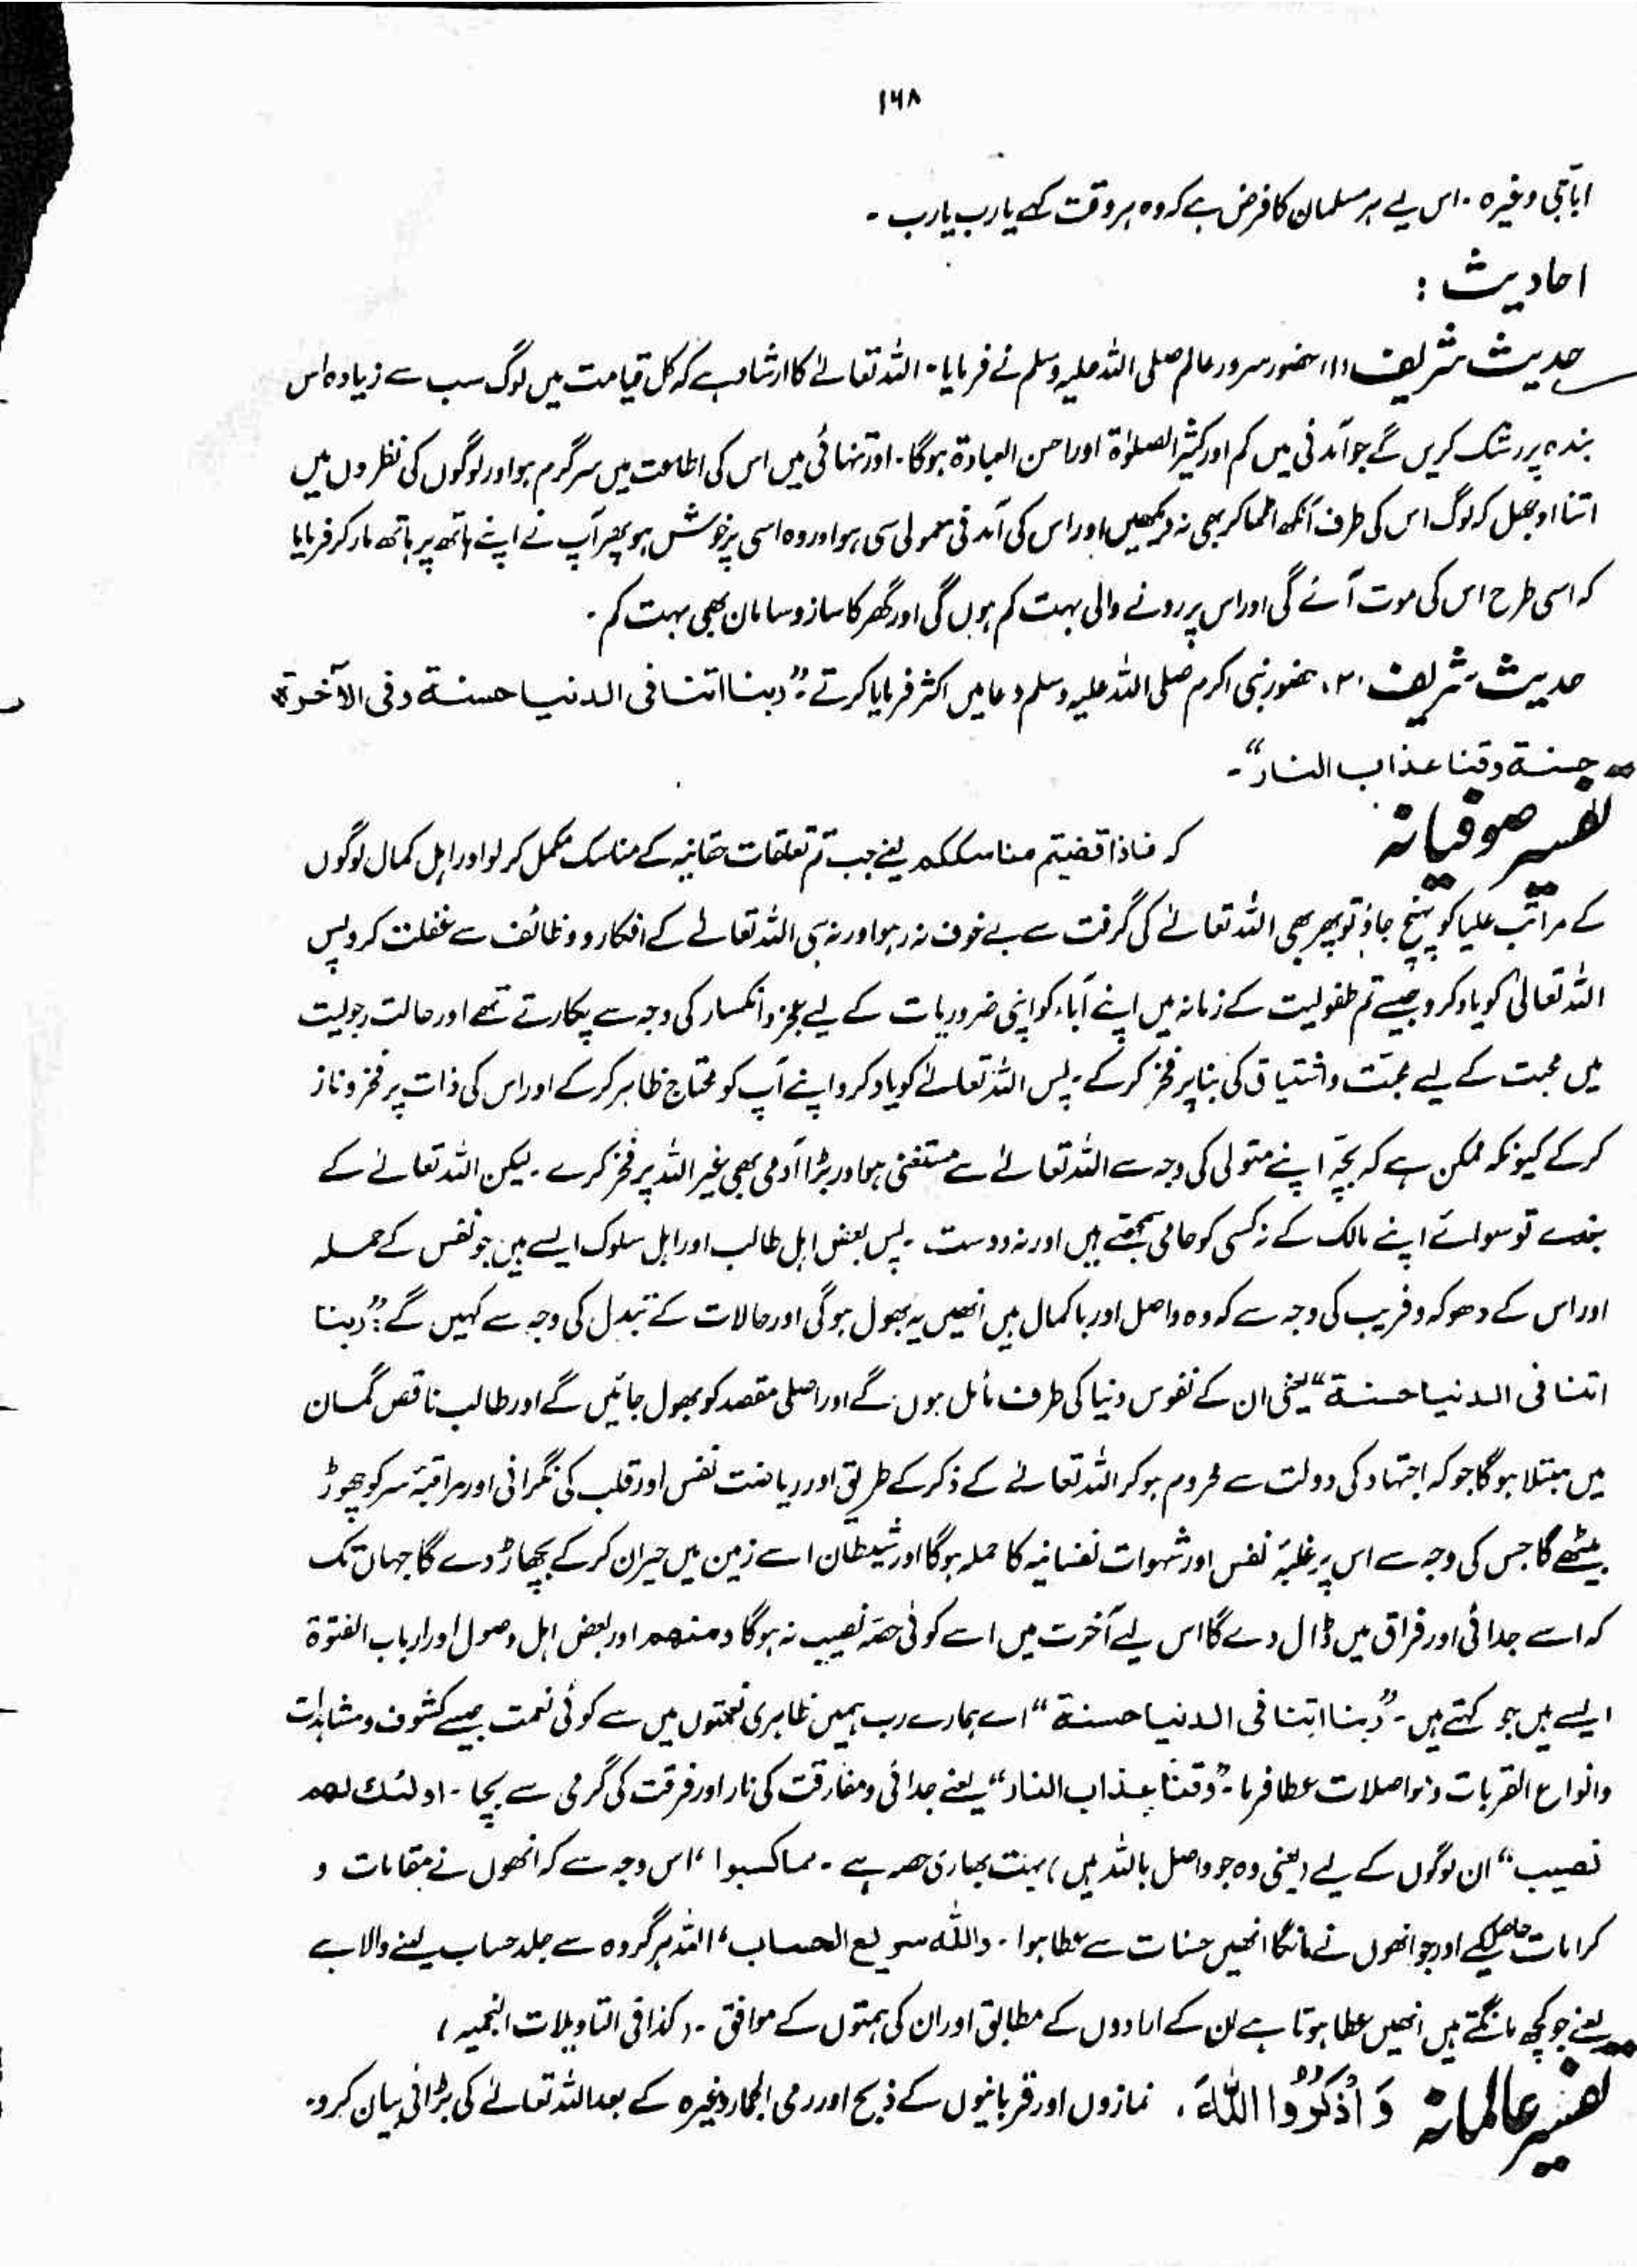 ۱۶۸
اباجی وغیرہ ۔ اس لیے ہر مسلمان کا فرض ہے کہ وہ ہر وقت کہے یارب یارب ۔
احادیث :
حدیث شریف (۱) حضور سرور عالم صلی اللہ علیہ وسلم نے فرمایا ۔ اللہ تعالےٰ کا ارشاد ہے کہ کل قیامت میں لوگ سب سے زیادہ اس
بندہ پر رشک کریں گے جو آمدنی میں کم اور کثیر الصلوٰۃ اور احسن العبادۃ ہوگا ۔ اور تنہائی میں اس کی اطاعت میں سرگرم ہو اور لوگوں کی نظروں میں
اتنا اوجھل کہ لوگ اس کی طرف آنکھ اٹھا کر بھی نہ دیکھیں اور اس کی آمدنی معمولی سی ہو اور وہ اسی پر خوش ہو پھر آپ نے اپنے ہاتھ پر ہاتھ مار کر فرمایا
کہ اسی طرح اس کی موت آئے گی اور اس پر رونے والی بہت کم ہوں گی اور گھر کا ساز و سامان بھی بہت کم ۔
حدیث شریف (۲) حضور نبی اکرم صلی اللہ علیہ وسلم دعا میں اکثر فرمایا کرتے :” ربنا اتنا فی الدنیا حسنۃ وفی الآخرۃ
حسنۃ وقنا عذاب النار“ ۔
تفسیر صوفیانہ کہ فاذا قضیتم مناسککم یعنے جب تم تعلقات حقانیہ کے مناسک مکمل کر لو اور اہل کمال لوگوں
کے مراتب علیا کو پہنچ جاؤ تو پھر بھی اللہ تعالےٰ کی گرفت سے بے خوف نہ رہو اور نہ ہی اللہ تعالےٰ کے افکار و وظائف سے غفلت کرو پس
اللہ تعالیٰ کو یاد کرو جیسے تم طفولیت کے زمانہ میں اپنے آباء کو اپنی ضروریات کے لیے عجز و انکسار کی وجہ سے پکارتے تھے اور حالت رجولیت
میں محبت کے لیے محبّت و اشتیاق کی بنا پر فخر کرکے ۔ پس اللہ تعالےٰ کو یاد کرو اپنے آپ کو محتاج ظاہر کرکے اور اس کی ذات پر فخر و ناز
کرکے کیونکہ ممکن ہے کہ بچّہ اپنے متولی کی وجہ سے اللہ تعالےٰ سے مستغنی ہو اور بڑا آدمی بھی غیر اللہ پر فخر کرے ۔ لیکن اللہ تعالےٰ کے
بندے تو سوائے اپنے مالک کے نہ کسی کو حامی سمجھتے ہیں اور نہ دوست ۔ پس بعض اہل طالب اور اہل سلوک ایسے ہیں جو نفس کے حملہ
اور اس کے دھوکہ و فریب کی وجہ سے کہ وہ واصل اور باکمال ہیں انھیں یہ بھول ہوگی اور حالات کے تبدل کی وجہ سے کہیں گے :” ربنا
اتنا فی الدنیا حسنۃ“ یعنی ان کے نفوس دنیا کی طرف مائل ہوں گے اور اصلی مقصد کو بھول جائیں گے اور طالب ناقص گمان
میں مبتلا ہوگا جو کہ اجتہاد کی دولت سے محروم ہو کر اللہ تعالےٰ کے ذکر کے طریق اور ریاضت نفس اور قلب کی نگرانی اور مراقبۂ سر کو چھوڑ
بیٹھے گا جس کی وجہ سے اس پر غلبۂ نفس اور شہوات نفسانیہ کا حملہ ہوگا اور شیطان اسے زمین میں حیران کرکے پچھاڑ دے گا جہاں تک
کہ اسے جدائی اور فراق میں ڈال دے گا اس لیے آخرت میں اسے کوئی حصّہ نصیب نہ ہوگا ومنھم اور بعض اہل وصول اور ارباب الفتوۃ
ایسے ہیں جو کہتے ہیں ۔” ربنا اتنا فی الدنیا حسنۃ“ اے ہمارے رب ہمیں ظاہری نعمتوں میں سے کوئی نعمت جیسے کشوف و مشاہدات
وانواع القربات و مواصلات عطا فرما ۔” وقنا عذاب النار“ یعنے جدائی و مفارقت کی نار اور فرقت کی گرمی سے بچا ۔ اولئک لھم
نصیب“ ان لوگوں کے لیے (یعنی وہ جو واصل باللہ ہیں) بہت بھاری حصہ ہے ۔ مما کسبوا ‘ اس وجہ سے کہ انھوں نے مقامات و
کرامات حاصل کیے اور جو انھوں نے مانگا انھیں حسنات سے عطا ہوا ۔ واللہ سریع الحساب ‘ اللہ ہر گروہ سے جلد حساب لینے والا ہے
یعنے جو کچھ مانگتے ہیں انھیں عطا ہوتا ہے ان کے ارادوں کے مطابق اور ان کی ہمتوں کے موافق ۔ (کذا فی التاویلات النجمیہ)
تفسیر عالمانہ وَ اذْکُرُوا اللّٰہَ ، نمازوں اور قربانیوں کے ذبح اور رمی الجمار وغیرہ کے بعد اللہ تعالےٰ کی بڑائی بیان کرو ۔